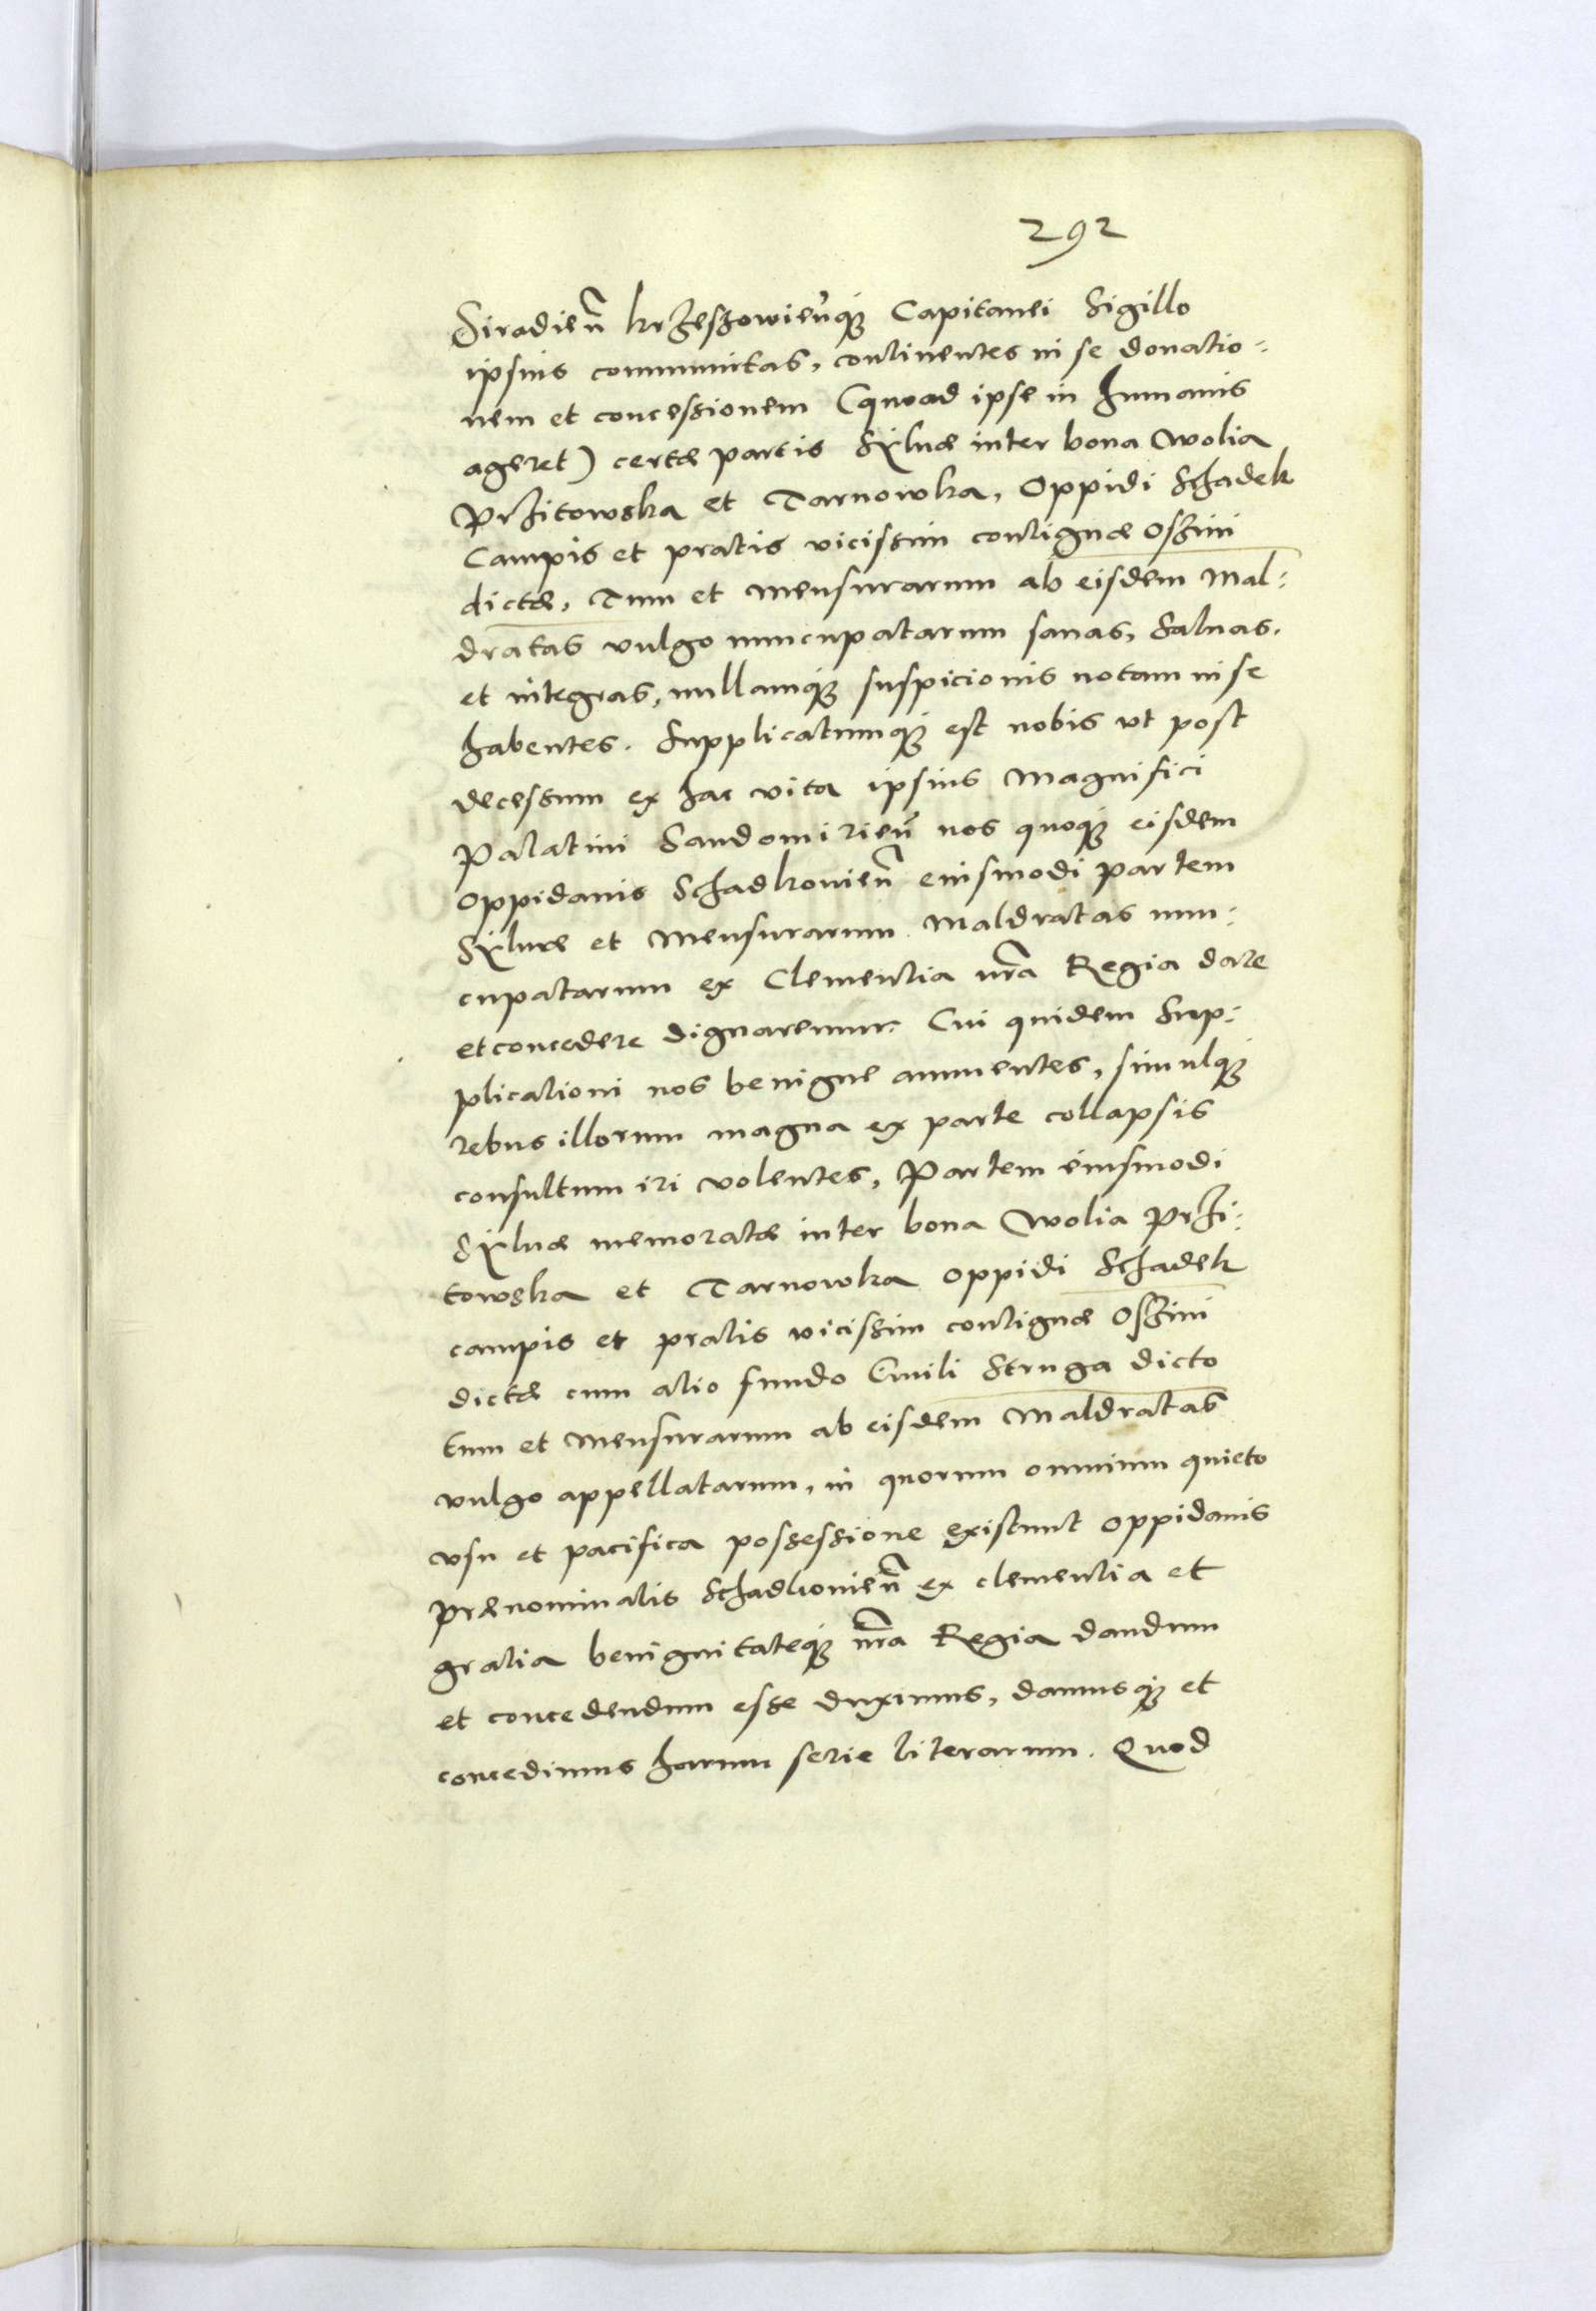 292
Siradien̄ krzeszowien̄q; Capitanei Sigillo
ipsius communitas, continentes in se donatio:
nem et concessionem (quoad ipse in humanis
ageret) certæ partis Sÿluæ inter bona Wolia
Przitowska et Tarnowka, Oppidi Schadek
Campis et pratis vicissim contiguæ Oszini
dictæ, Tum et Mensurarum ab eisdem Mal:
dratas vulgo nuncupatarum sanas, Saluas.
et integras, nullamq; suspicionis notam in se
habentes. Supplicatumq; est nobis vt post
decessum ex hac vita ipsius Magnifici
Palatini Sandomirien̄ nos quoq; eisdem
Oppidanis Schadkouien̄ eiusmodi partem
Sÿluæ et Mensurarum Maldratas nun:
cupatarum ex Clementia nr̄a Regia dare
et concedere dignaremur. Cui quidem Sup:
plicationi nos benigne annuentes, simulq;
rebus illorum magna ex parte collapsis
consultum iri volentes, Partem eiusmodi
Sÿluæ memoratæ inter bona Wolia Przi:
towska et Tarnowka Oppidi Schadek
campis et pratis vicissim contiguæ Oszini
dictæ cum alio fundo Emili Struga dicto
tum et Mensurarum ab eisdem Maldratas
vulgo appellatarum, in quorum omnium quieto
vsu et pacifica possessione existunt Oppidanis
prænominatis Schadkouien̄ ex clementia et
gratia benignitateq; nr̄a Regia dandum
et concedendum esse duximus, damusq; et
concedimus harum serie literarum. Quod